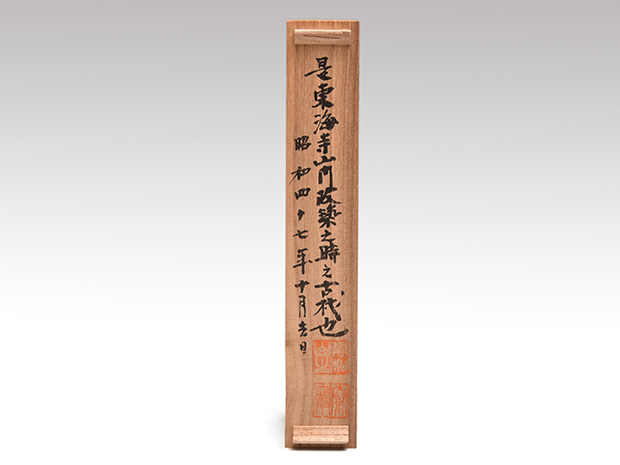 是東海寺山門改築之時之古材也
昭和四十七年十月吉日